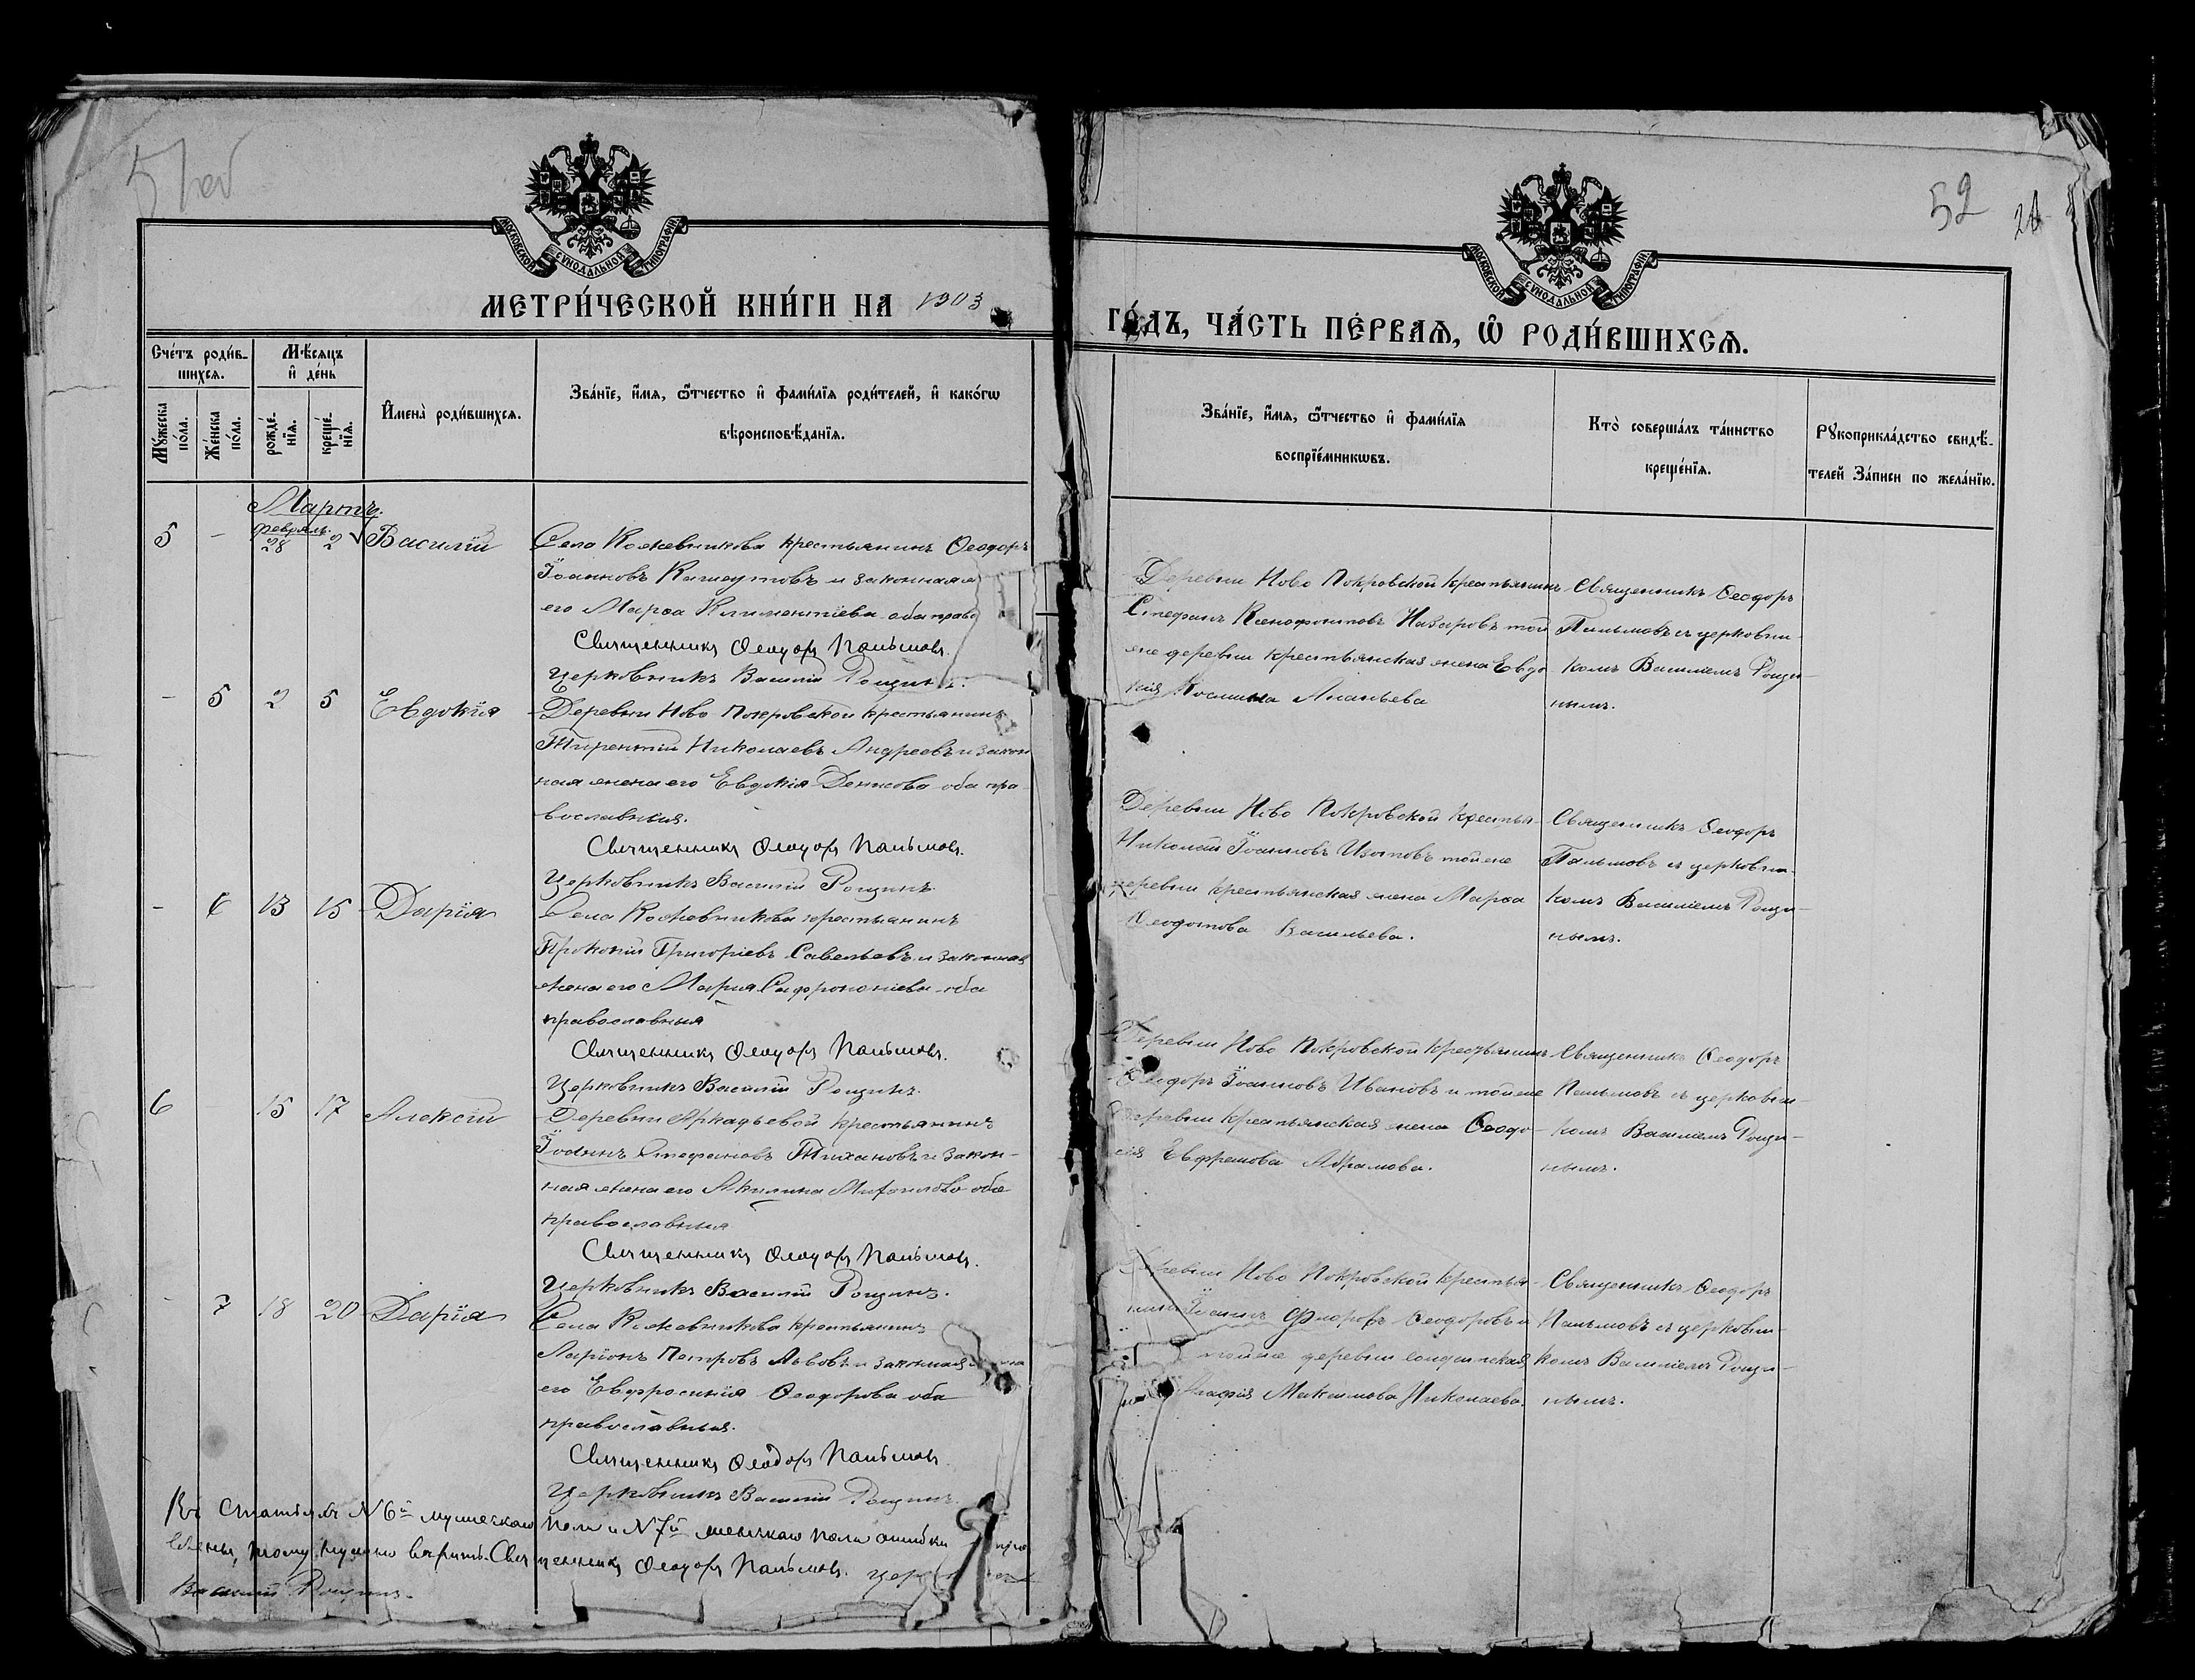 51 об
52
МОСКОВСКОЙ СѴНОДАЛЬНОЙ ТИПОГРАФІИ
МОСКОВСКОЙ СѴНОДАЛЬНОЙ ТИПОГРАФІИ
МЕТРИ́ЧЕСКОЙ КНИ́ГИ НА 1903
ГО́ДЪ, ЧА́СТЬ ПЕ́РВАѦ, Ѡ РОДИ́ВШИХСѦ.
Сче́тъ роди́в-
шихсѧ.
Мѣ́сѧцъ
и҆ де́нь
Мꙋ́жеска
по́ла.
Же́нска
по́ла.
рожде́-
нїѧ.
креще́-
нїѧ.
И҆мена̀ роди́вшихсѧ.
Зва́нїе, и҆́мѧ, ѻ҆́тчество и҆ фами́лїѧ роди́телей, и҆ како́гѡ
вѣроисповѣ́данїѧ.
Зва́нїе, и҆́мѧ, ѻ҆́тчество и҆ фами́лїѧ
воспрїе́мникѡвъ.
Кто̀ соверша́лъ та́инство
креще́нїѧ.
Рꙋкоприкла́дство свидѣ́-
телей За́писи по жела́нїю.
Мартъ.
Февраль.
5 - 28 2 Василій
Села Кожевникова крестьянинъ Ѳеодоръ
Іоанновъ и законная
его Марѳа Климентіева оба право
Священникъ Ѳеодоръ Пальмовъ.
Церковникъ Василій Рощинъ.
Деревни Ново Покровской крестьянинъ
Стефанъ Ксенофонтовъ Назаровъ той
же деревни крестьянская жена Евдо
кія Космина Ананьева
Священникъ Ѳеодоръ
Пальмовъ съ церковни-
комъ Василіемъ Рощи-
нымъ.
- 5 2 5 Евдокія
Деревни Ново Покровской крестьянинъ
Терентій Николаевъ Андреевъ и закон
ная жена его Евдокія Денисова оба пра
вославныя.
Священникъ Ѳеодоръ Пальмовъ.
Церковникъ Василій Рощинъ.
Деревни Ново Покровской крестья-
Николай Іоанновъ Изотовъ той же
деревни крестьянская жена Марѳа
Ѳеодотова Васильева.
Священникъ Ѳеодоръ
Пальмовъ съ церковни-
комъ Василіемъ Рощи-
нымъ.
- 6 13 15 Дарія
Села Кожевникова крестьянинъ
Прокопій Григоріевъ Савельевъ и законная
жена его Марія Софроніева оба
православныя
Священникъ Ѳеодоръ Пальмовъ.
Церковникъ Василій Рощинъ.
Деревни Ново Покровской крестьянинъ
Ѳеодоръ Іоанновъ Ивановъ и той же
деревни крестьянская жена Ѳеодо-
сія Евфремова Абрамова.
Священникъ Ѳеодоръ
Пальмовъ съ церковни-
комъ Василіемъ Рощи-
нымъ.
6 - 15 17 Алексій
Деревни Аркадьевой крестьянинъ
Іоаннъ Стефановъ Тихановъ и закон-
ная жена его Акилина Михайлова оба
православныя
Священникъ Ѳеодоръ Пальмовъ.
Церковникъ Василій Рощинъ.
Деревни Ново Покровской крестья-
нинъ Іоаннъ Ѳеодоровъ и
той же деревни солдатская
Агафія Максимова Николаева.
Священникъ Ѳеодоръ
Пальмовъ съ церковни-
комъ Василіемъ Рощи-
нымъ.
- 7 18 20 Дарія
Села Кожевникова крестьянинъ
Ларіонъ Петровъ Львовъ и законная жена
его Евфросинія Ѳеодорова оба
православныя.
Священникъ Ѳеодоръ Пальмовъ
Церковникъ Василій Рощинъ.
Въ статьяхъ N 6й мужескаго пола и N 7й женскаго пола ошибки
тому нужно вѣрить. Священникъ Ѳеодоръ Пальмовъ.
Василій Рощинъ.